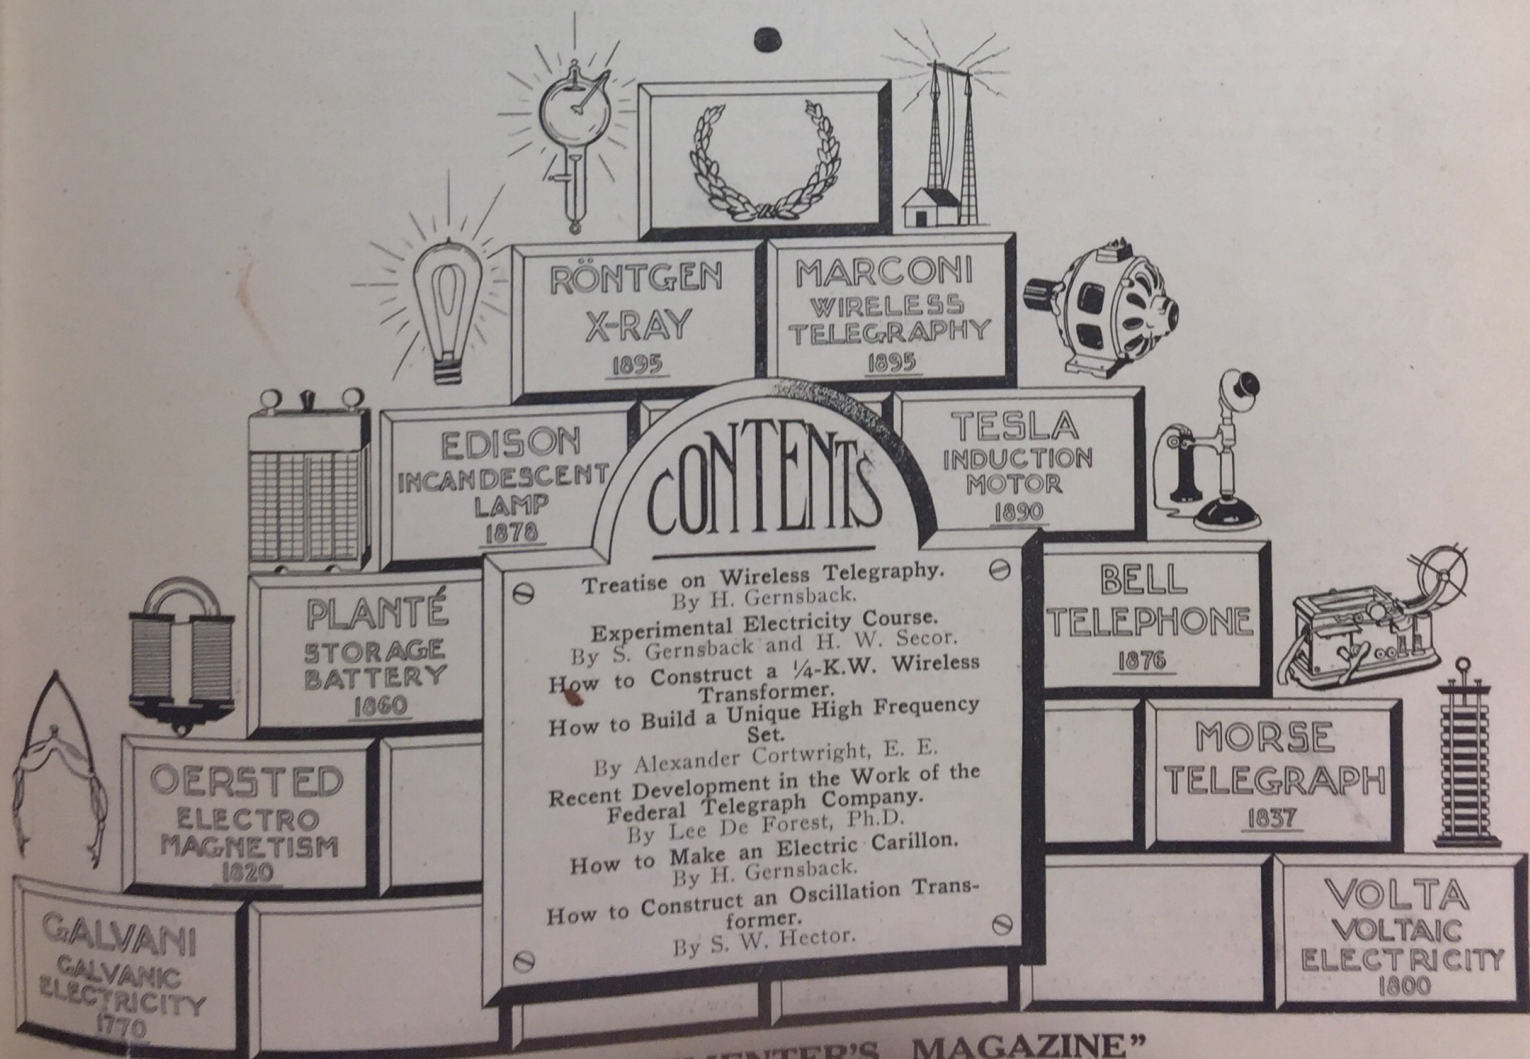 RÖNTGEN
X-RAY
1895
MARCONI
WIRELESS
TELEGRAPHY
1895
EDISON
INCANDESCENT
LAMP
1878
TESLA
INDUCTION
MOTOR
1890
PLANTÉ
STORAGE
BATTERY
1860
BELL
TELEPHONE
1876
OERSTED
ELECTRO
MAGNETISM
1820
MORSE
TELEGRAPH
1837
GALVANI
GALVANIC
ELECTRICITY
1770
VOLTA
VOLTAIC
ELECTRICITY
1800
CONTENTS
Treatise on Wireless Telegraphy.
By H. Gernsback.
Experimental Electricity Course.
By S. Gernsback and H. W. Secor.
How to Construct a ¼-K.W. Wireless
Transformer.
How to Build a Unique High Frequency
Set.
By Alexander Cortwright, E. E.
Recent Development in the Work of the
Federal Telegraph Company.
By Lee De Forest, Ph.D.
How to Make an Electric Carillon.
By H. Gernsback.
How to Construct an Oscillation Trans-
former.
By S. W. Hector.
MAGAZINE"